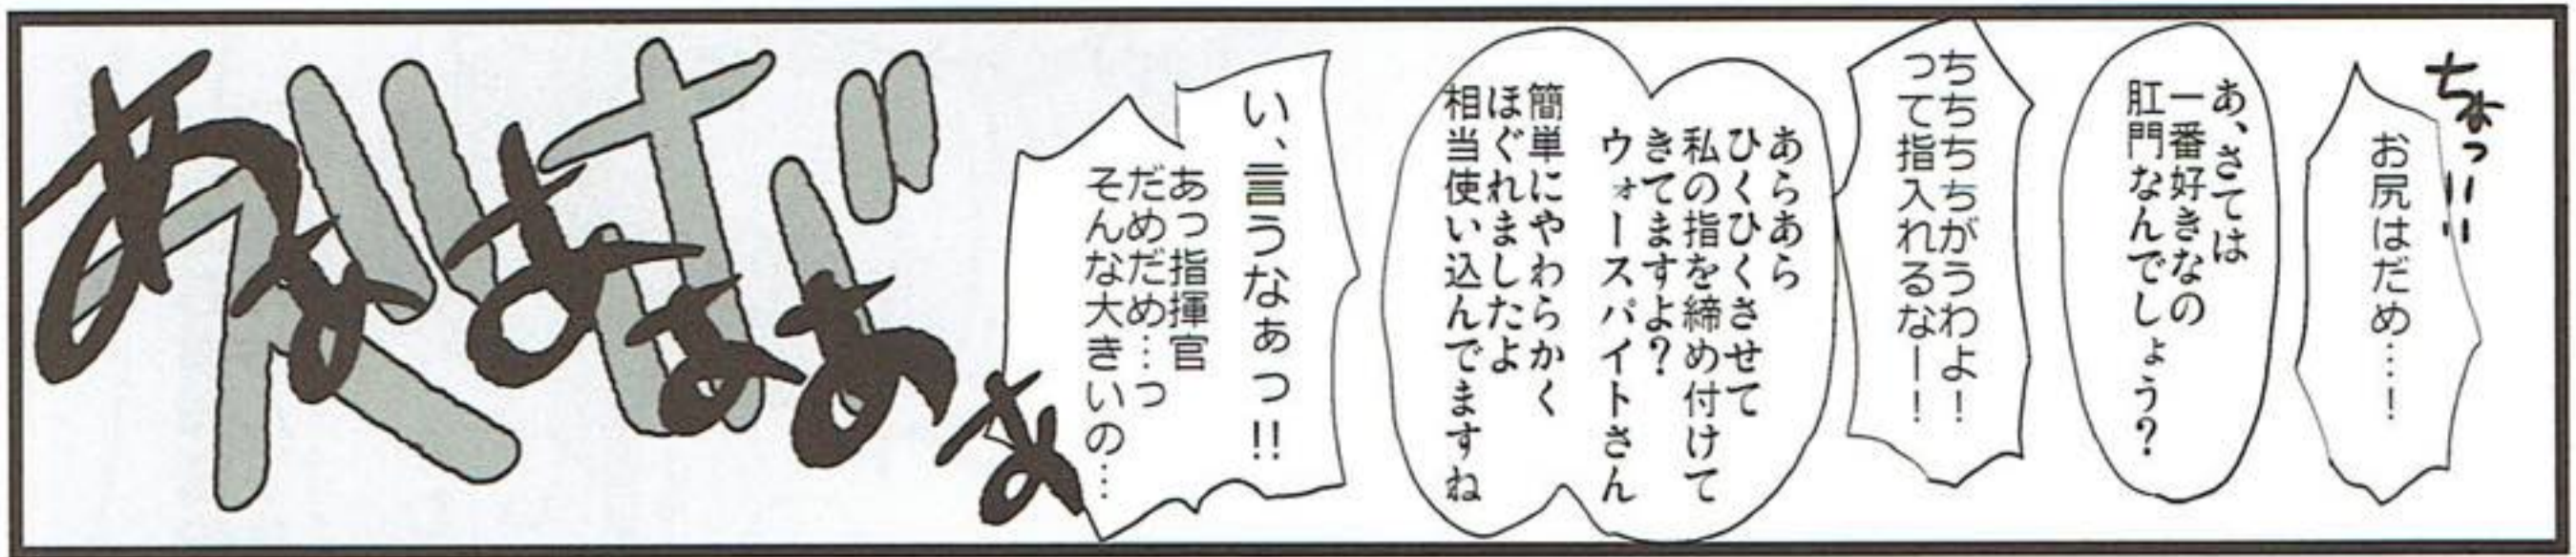 ちょっ!!
お尻はだめ…!
あ、さては
一番好きなの
肛門なんでしょう?
ちちちちがうわよ!
って指入れるなー!
あらあら
ひくひくさせて
私の指を締め付けて
きてますよ?
ウォースパイトさん
簡単にやわらかく
ほぐれましたよ
相当使い込んでますね
い、言うなぁっ!!
あっ指揮官
だめだめ…っ
そんな大きいの…